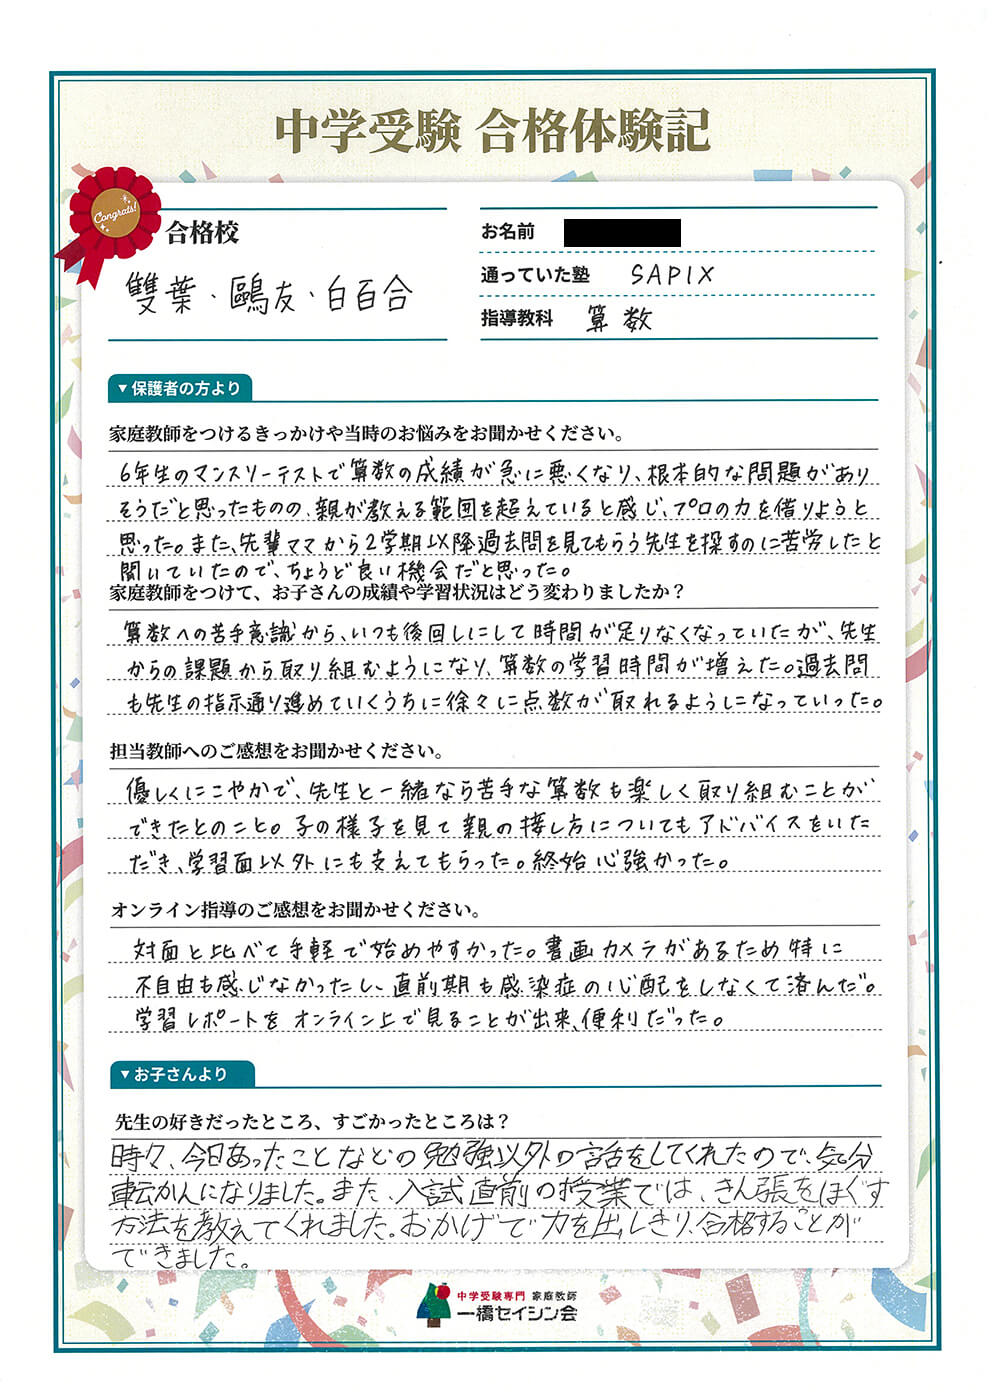 中学受験 合格体験記
Congrats!
合格校
雙葉、鷗友、白百合
お名前
通っていた塾 SAPIX
指導教科 算数
▼保護者の方より
家庭教師をつけるきっかけや当時のお悩みをお聞かせください。
6年生のマンスリーテストで算数の成績が急に悪くなり、根本的な問題があり
そうだと思ったものの、親が教える範囲を超えていると感じ、プロの力を借りようと
思った。また、先輩ママから2学期以降過去問を見てもらう先生を探すのに苦労したと
聞いていたので、ちょうど良い機会だと思った。
家庭教師をつけて、お子さんの成績や学習状況はどう変わりましたか？
算数への苦手意識から、いつも後回しにして時間が足りなくなっていたが、先生
からの課題から取り組むようになり、算数の学習時間が増えた。過去問
も先生の指示通り進めていくうちに徐々に点数が取れるようになっていった。
担当教師へのご感想をお聞かせください。
優しくにこやかで、先生と一緒なら苦手な算数も楽しく取り組むことが
できたとのこと。子の様子を見て親の接し方についてもアドバイスをいた
だき、学習面以外にも支えてもらった。終始心強かった。
オンライン指導のご感想をお聞かせください。
対面と比べて手軽で始めやすかった。書画カメラがあるため特に
不自由も感じなかったし、直前期も感染症の心配をしなくて済んだ。
学習レポートをオンライン上で見ることが出来、便利だった。
▼お子さんより
先生の好きだったところ、すごかったところは？
時々、今日あったことなどの勉強以外の話をしてくれたので、気分
転かんになりました。また、入試直前の授業では、きん張をほぐす
方法を教えてくれました。おかげで力を出しきり、合格することが
できました。
中学受験専門 家庭教師
一橋セイシン会